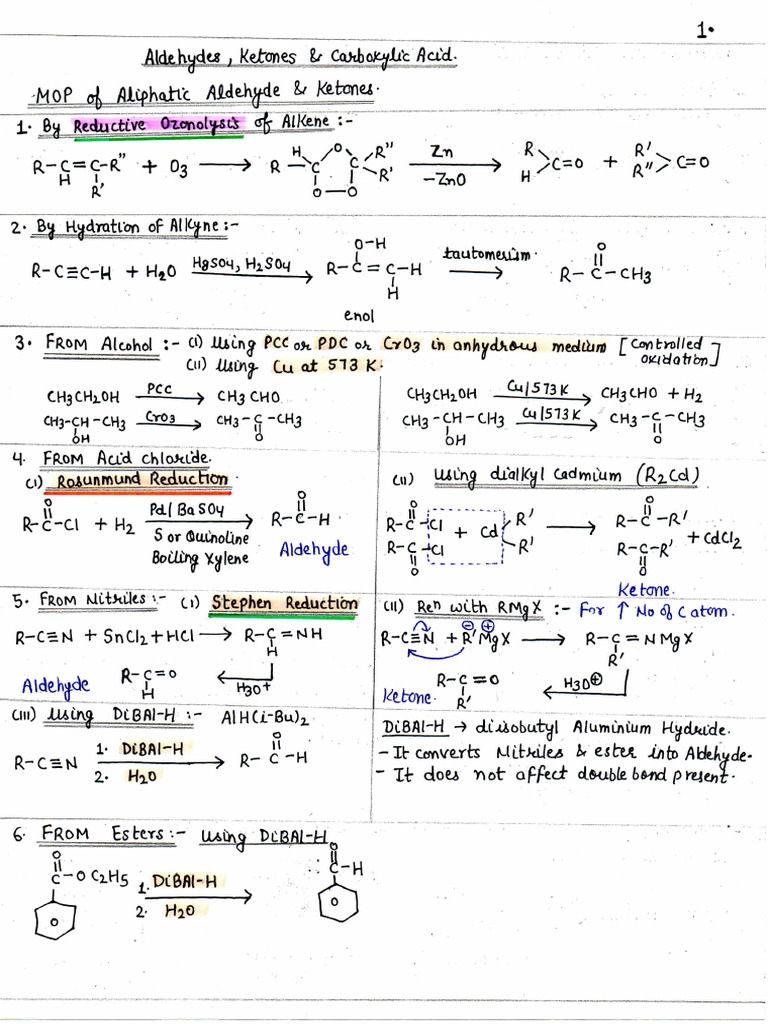 1.
Aldehydes, Ketones & Carboxylic Acid.
MOP of Aliphatic Aldehyde & Ketones.
1. By Reductive Ozonolysis of Alkene :-
R-C=C-R" + O3 → R-C C R" R' Zn → R C=O + R' C=O
H R' H O O—O -ZnO H R"
2. By Hydration of Alkyne :-
R-C≡C-H + H2O HgSO4, H2SO4 → R-C=C-H tautomerism. → R-C-CH3
O-H H O
enol
3. FROM Alcohol :- (i) Using PCC or PDC or CrO3 in anhydrous medium [Controlled oxidation]
(ii) Using Cu at 573 K.
CH3CH2OH PCC → CH3CHO
CH3-CH-CH3 CrO3 → CH3-C-CH3
OH O
CH3CH2OH Cu/573K → CH3CHO + H2
CH3-CH-CH3 Cu/573K → CH3-C-CH3
OH O
4. FROM Acid chloride.
(i) Rosunmund Reduction
O O
R-C-Cl + H2 Pd/BaSO4 → R-C-H
S or Quinoline
Boiling Xylene
Aldehyde
(ii) Using dialkyl Cadmium (R2Cd)
O O
R-C-Cl + Cd R' → R-C-R' + CdCl2
R-C-Cl R' R-C-R'
O O
Ketone.
5. FROM Nitriles :- (i) Stephen Reduction
R-C≡N + SnCl2 + HCl → R-C=NH
H
R-C=O ← H3O+
H
Aldehyde
(ii) Ren with RMgX :- For ↑ No of C atom.
R-C≡N + R'MgX → R-C=NMgX
⊖ ⊕ R'
R-C=O ← H3O⊕
R'
Ketone.
(iii) Using DiBAl-H :- AlH(i-Bu)2
R-C≡N 1. DiBAl-H → R-C-H
2. H2O O
DiBAl-H → diisobutyl Aluminium Hydride.
- It converts Nitriles & ester into Aldehyde.
- It does not affect double bond present.
6. FROM Esters :- Using DiBAl-H
O O
C-OC2H5 1. DiBAl-H → C-H
2. H2O